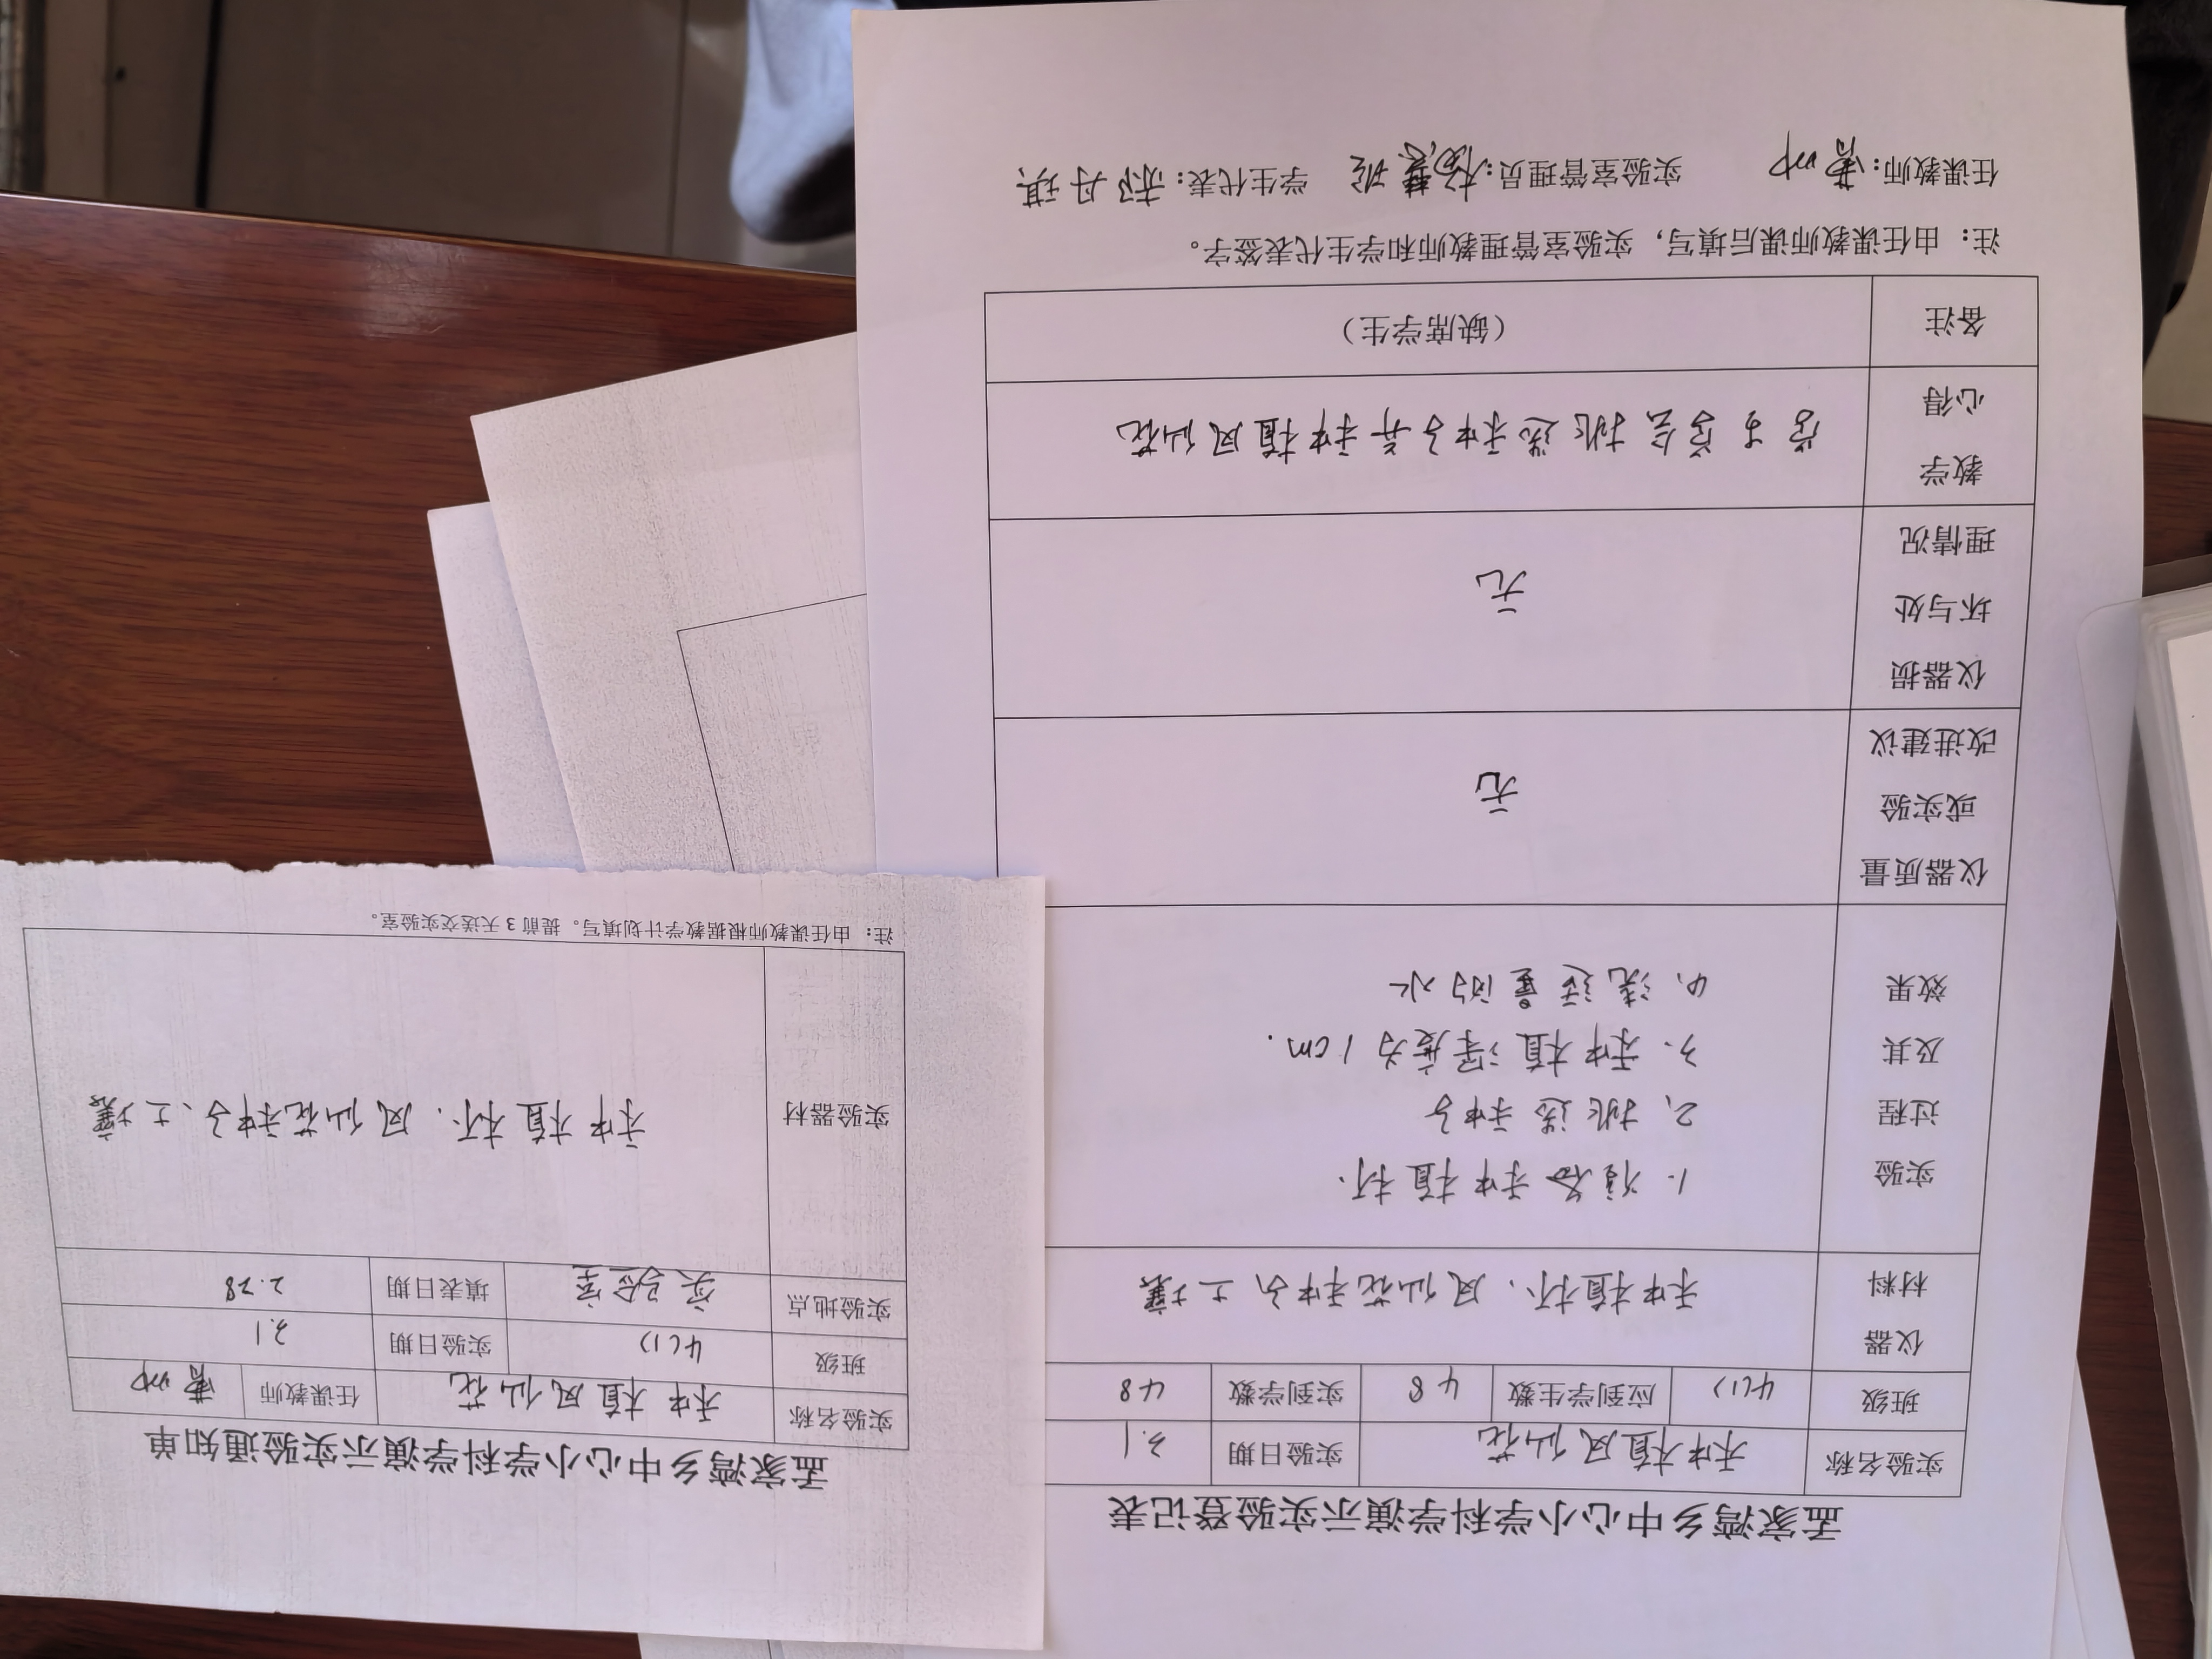 孟家湾乡中心小学科学演示实验登记表
实验名称 种植凤仙花 实验日期 3.1
班级 4(1) 应到学生数 48 实到学数 48
仪器材料 种植杯、凤仙花种子、土壤
实验过程及其效果
1. 准备种植杯.
2、挑选种子
3. 种植深度为1cm.
4、浇适量的水
仪器质量或实验改进建议 无
仪器损坏与处理情况 无
教学心得 学生学会挑选种子并种植凤仙花
备注 (缺席学生)
注：由任课教师课后填写，实验室管理教师和学生代表签字。
任课教师: 实验室管理员: 学生代表:
孟家湾乡中心小学科学演示实验通知单
实验名称 种植凤仙花 任课教师
班级 4(1) 实验日期 3.1
实验地点 实验室 填表日期 2.28
实验器材 种植杯. 凤仙花种子、土壤
注：由任课教师根据教学计划填写。提前3天送交实验室。